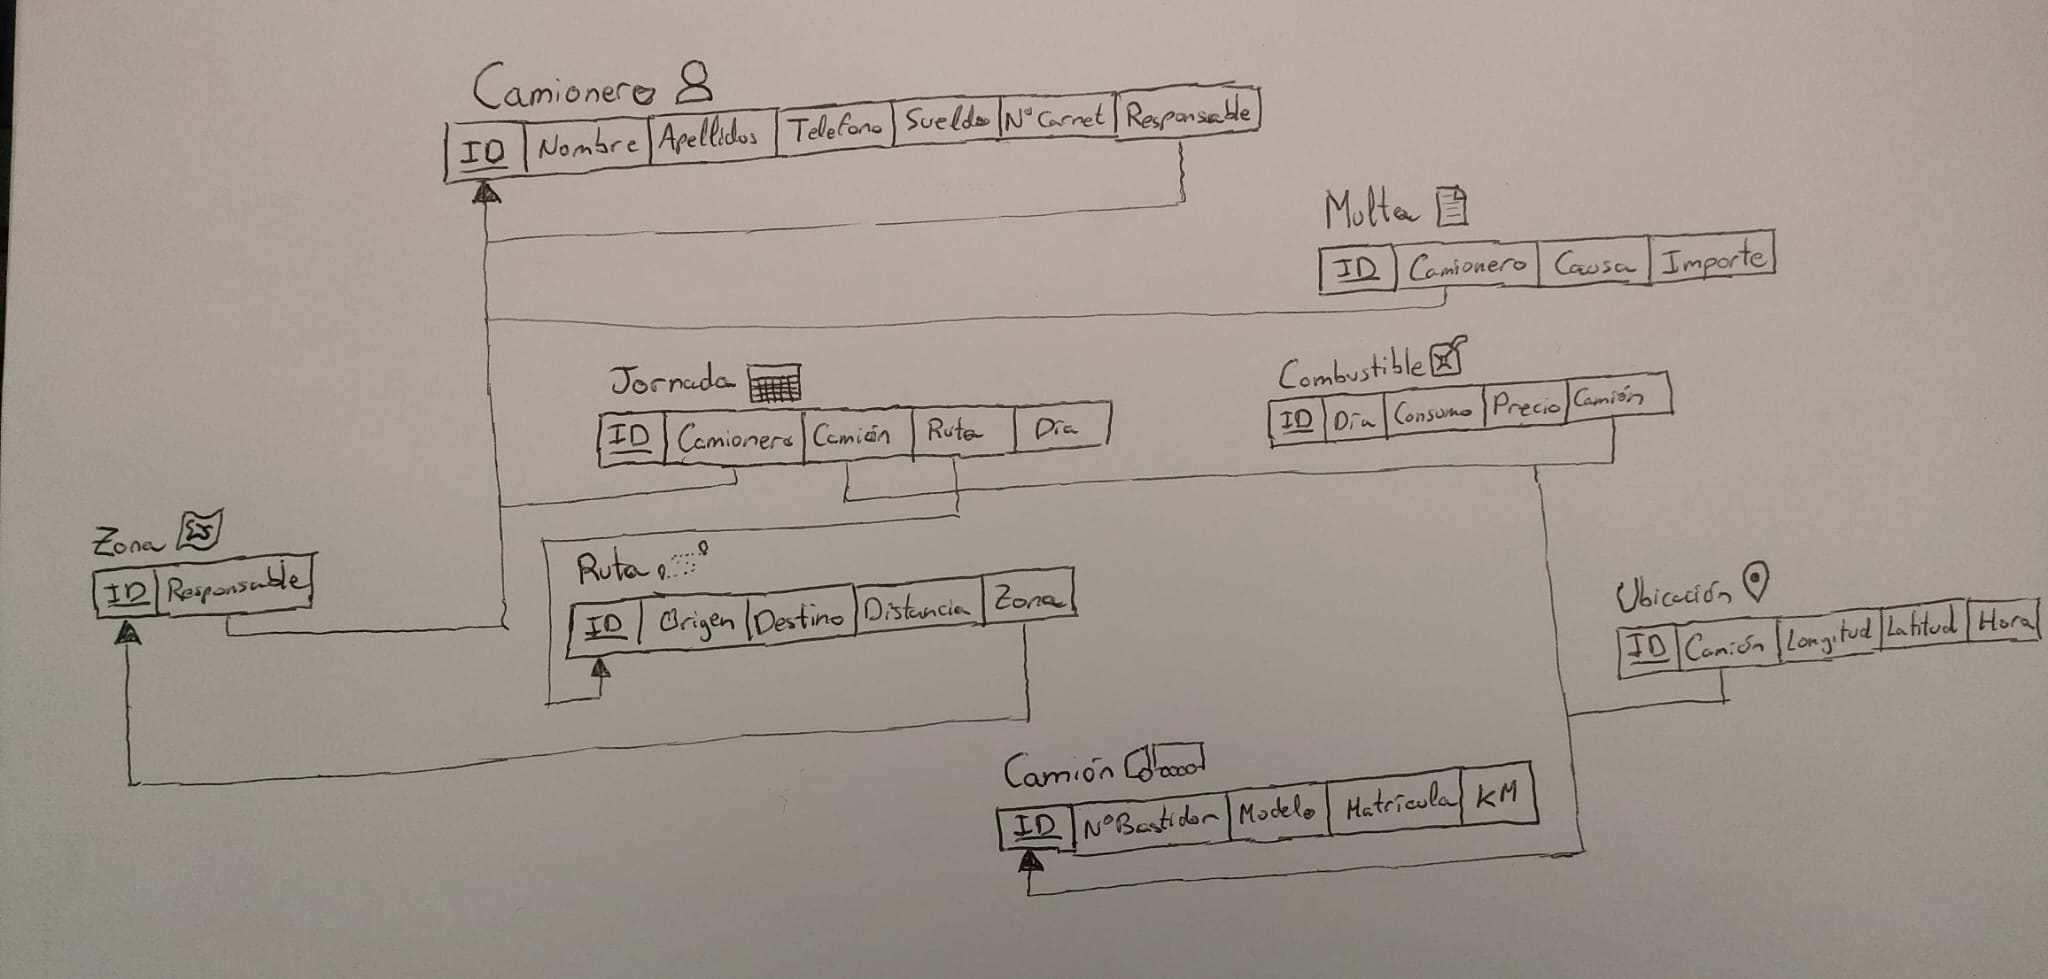 Camionero
ID Nombre Apellidos Telefono Sueldo Nº Carnet Responsable
Multa
ID Camionero Causa Importe
Jornada
ID Camionero Camión Ruta Día
Combustible
ID Día Consumo Precio Camión
Zona
ID Responsable
Ruta
ID Origen Destino Distancia Zona
Ubicación
ID Camión Longitud Latitud Hora
Camión
ID NºBastidor Modelo Matrícula KM